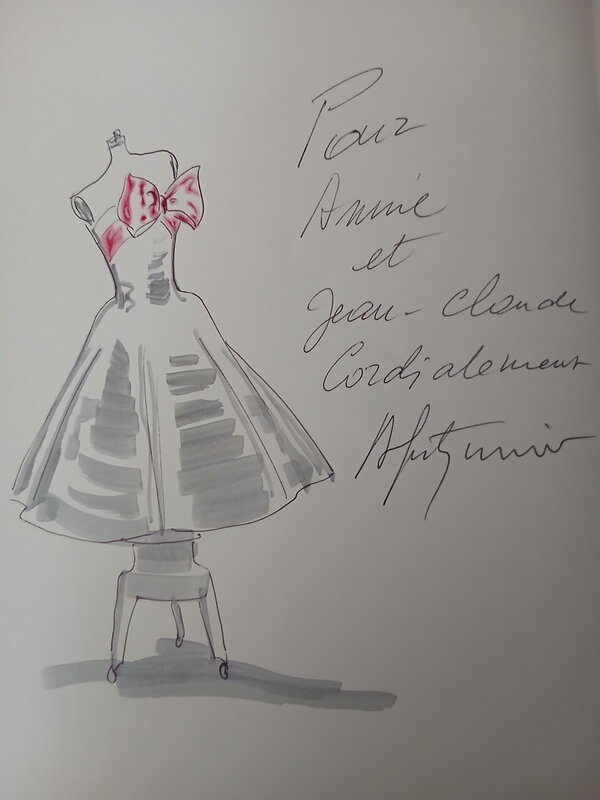 Pour
Annie
et
Jean-Claude
Cordialement